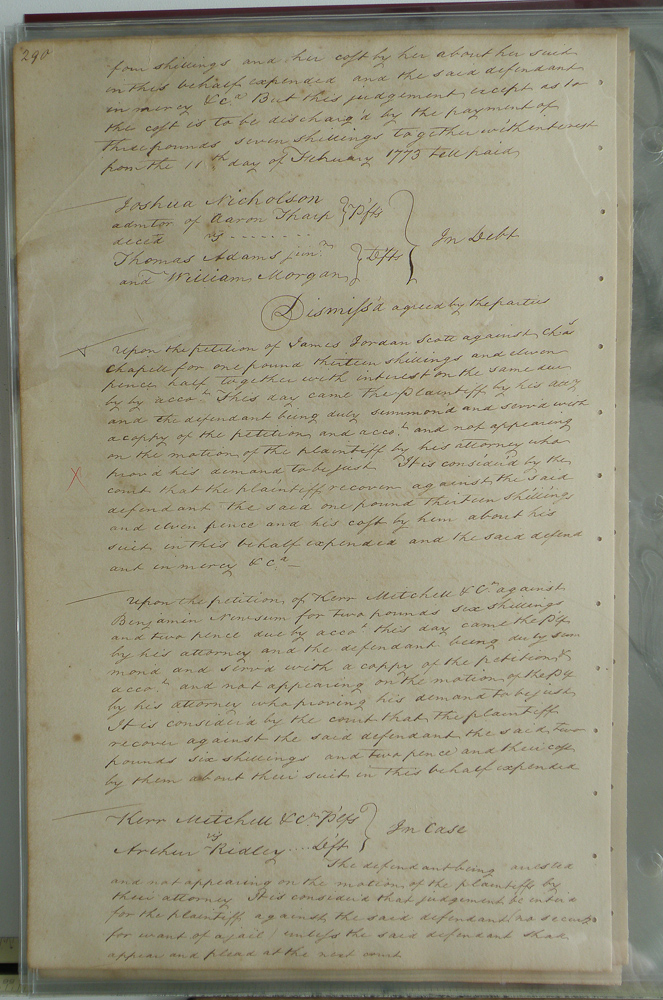 290
four shillings and her cost by her about her said
in this behalf expended and the said defendant
in mercy &c.a But this judgement except as to
the cost is to be discharg'd by the payment of
three pounds seven shillings together with interest
from the 11th day of February 1773 till paid
Joshua Nicholson
admtor of Aaron Tharp } Plfts
decd vs
Thomas Adams junr. } Defts
and William Morgan
In Debt
Dismiss'd agreed by the parties
Upon the petition of James Jordan Scott against Chas
Chapell for one pound thirteen shillings and eleven
pence half together with interest on the same due
by by accot. This day came the plaintiff by his atty
and the defendant being duly summon'd and serv'd with
a coppy of the petition and accot. and not appearing
on the motion of the plaintiff by his attorney who
prov'd his demand to be just It is consider'd by the
court that the plaintiff recover against the said
defendant the said one pound thirteen shillings
and elven pence and his cost by him about his
suit in this behalf expended and the said defend
ant in mercy &c.a
Upon the petition of Kerr Mitchell & Co. against
Benjamin Newsum for two pounds six shillings
and two pence due by accot this day came the
by his attorney and the defendant being duly sum
mond and serv'd with a coppy of the petition &
accot. and not appearing on the motion of the
by his attorney who proving his demand to be just
It is consider'd by the court that the plaintiff
recover against the said defendant the said two
pounds six shillings and two pence and their cost
by them about their suit in this behalf expended
Kerr Mitchell & Co. Plfs
vs
Arthur Ridley .... Deft
In Case
The defendant being arrested
and not appearing on the motion of the plaintiffs by
their attorney It is consider'd that judgement be enter'd
for the plaintiff against the said defendant no
for want of a jail unless the said defendant shall
appear and plead at the next court